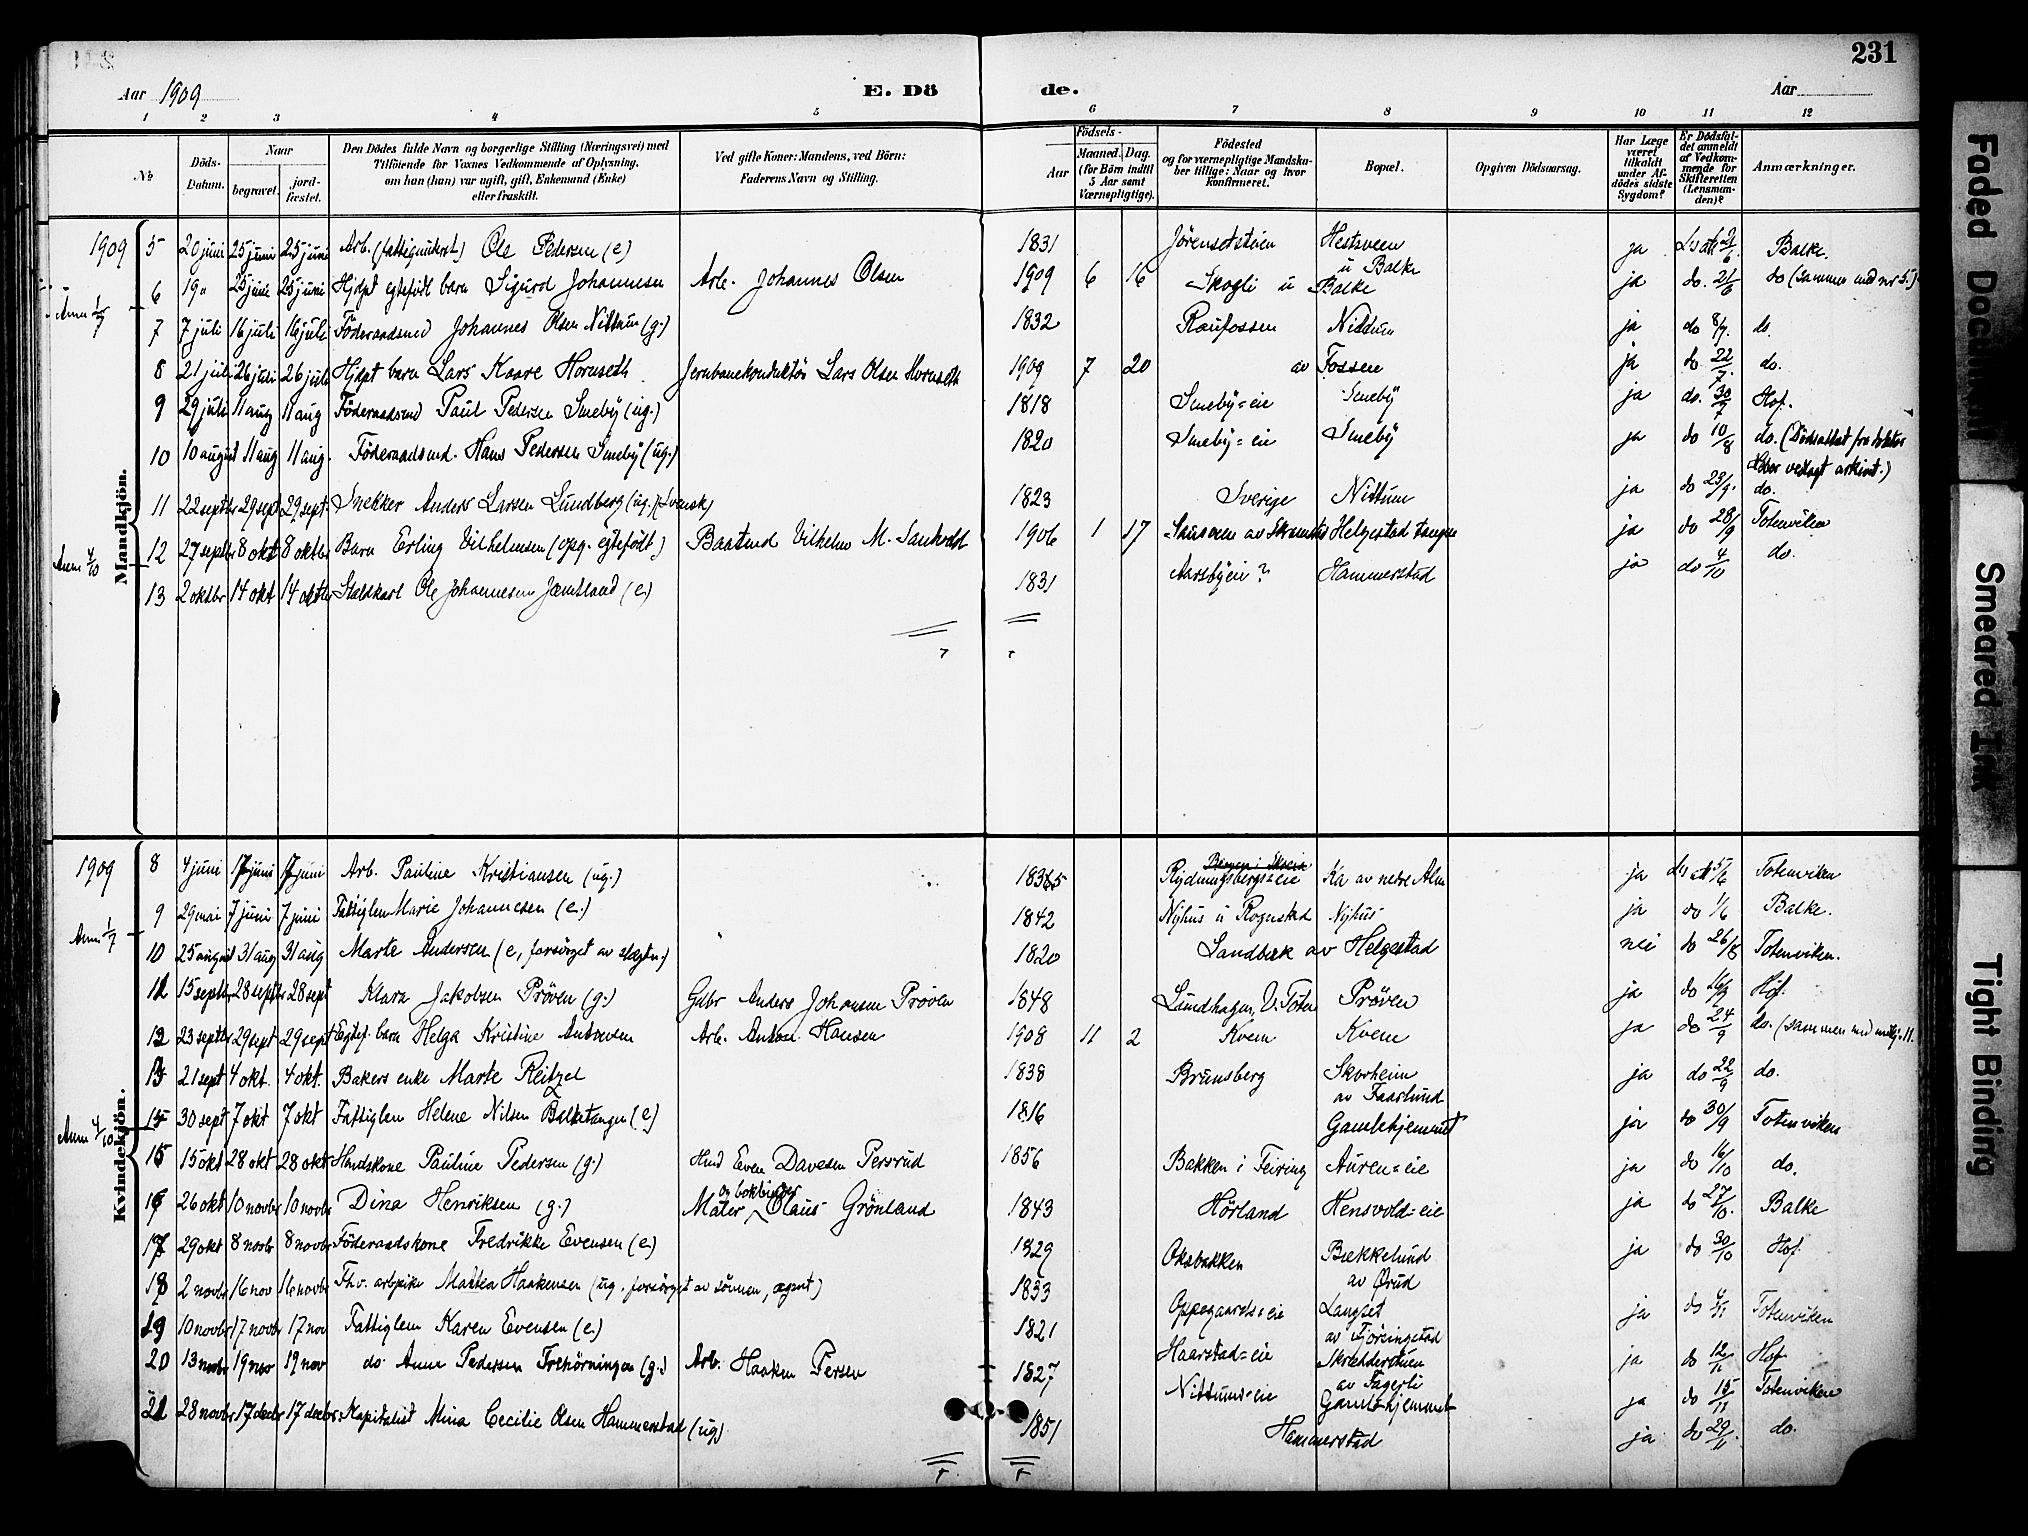 231
Aar 1909
E. Dö
de.
Aar
1 2 3 4 5 6 7 8 9 10 11 12
No
Döds-Datum.
Naar
begravet.
jord-fæstet.
Den Dödes fulde Navn og borgerlige Stilling (Næringsvei) med
Tilföiende for Voxnes Vedkommende af Oplysning,
om han (hun) var ugift, gift, Enkemand (Enke)
eller fraskilt.
Ved gifte Koner: Mandens, ved Börn:
Faderens Navn og Stilling.
Födsels-
Aar
Maaned. Dag.
(for Börn indtil
5 Aar samt
Værnepligtige).
Födested
og for værnepligtige Mandska-
ber tillige: Naar og hvor
konfirmeret.
Bopæl.
Opgiven Dödsaarsag.
Har Læge
været
tilkaldt
under Af-
dödes sidste
Sygdom?
Er Dödsfal-
det anmeldt
af Vedkom-
mende for
Skifteretten
(Lensman-
den)?
Anmærkninger.
Mandkjön.
1909 5 20 juni 25 juni 25 juni Arb. (fattigunderst.) Ole Pedersen (e) 1831 Hestsveen u Balke ja Balke.
6 19 " 25 juni 25 juni Hjdpt egtefödt barn Sigurd Johannesen Arb. Johannes Olsen 1909 6 16 Skogli u Balke ja do. 21/6 do (sammen med nr 5.)
Anm 1/7
7 7 juli 16 juli 16 juli Föderaadsmd Johannes Olsen Nittum (g.) 1832 Raufossen Nittum ja do 8/7. do.
8 21 juli 26 juli 26 juli Hjdpt barn Lars Kaare Hornseth Jernbanekonduktör Lars Olsen Hornseth 1909 7 20 av Fossen ja do 22/7. do.
9 29 juli 11 aug 11 aug Föderaadsmd Paul Pedersen Smeby (ug.) 1818 Smeby=eie Smeby ja do. 30/7 Hof.
10 10 august 11 aug 11 aug. Föderaadsmd. Hans Pedersen Smeby (ug.) 1820 Smeby=eie Smeby ja do 10/8 do. (Dödsattest fra doktor
vedlagt arkivet.)
11 22 septbr 29 sept 29 sept. Snekker Anders Larsen Lundberg (ug.) (Svensk) 1823 Sverige Nittum ja do 23/9. do.
12 27 septbr 8 okt 8 oktbr Barn Erling Vilhelmsen (opg. egtefödt.) Baatsmd Vilhelm M. 1906 1 17 Helgestad tangen ja do 28/9 Totenviken
Anm 4/10
13 2 oktbr 14 okt 14 oktbr Staldkarl Ole Johannesen Jæmtland (e) 1831 Aarsbyeie? Hammerstad ja do 4/10 do.
Kvindekjön.
1909 8 4 juni 17 juni 17 juni Arb. Pauline Kristiansen (ug.) ja Totenviken
9 29 mai 7 juni 7 juni Fattiglem Marie Johannesen (e.) 1842 Nyhus u Rognstad Nyhus ja do 1/6 Balke.
Anm 1/7
10 25 august 31 aug 31 aug Marte Andersen (e, forsörget av slegtn.) 1820 Sandbæk av Helgestad nei do 26/8 Totenviken.
11 15 septbr 28 septbr 28 sept Klara Jakobsen Pröven (g.) Gdbr Anders Johansen Pröven 1848 Lundhagen, V. Toten Pröven ja do 16/9 Hof.
12 23 septbr 29 sept 29 sept Egtef. barn Helga Kristine Antonsen Arb. Anton Hansen 1908 11 2 Kvem Kvem ja do 24/9 do. (sammen med mkj. 11.
13 21 sept 4 okt. 4 okt. Bakers enke Marte Reitzel 1838 Brunsberg Skorheim av Faarlund ja do 22/9 do.
30 sept 7 okt 7 okt Fattiglem Helene Nilsen Balketangen (e) 1816 Gamlehjemmet ja do 30/9 Totenviken
Anm 4/10
15 15 okt 28 okt 28 okt Handskone Pauline Pedersen (g.) Hmd Even Davesen Persrud 1856 Bakken i Feiring Auren=eie ja do 16/10 do.
16 26 okt 10 novbr 10 novbr Dina Henriksen (g.) Maler og bokbinder Olaus Grönland 1843 Hörland Hensvold=eie ja do 27/10. Balke
17 29 okt 8 novbr 8 novbr Föderaadskone Fredrikke Evensen (e) 1829 Oksbakken Bækkelund av Ørud ja do 30/10 Hof
18 2 novbr 16 nov 16 novbr Fhv. arbpike Mathea Haakensen (ug. forsörget av sönnen, ) 1833 Oppegaards=eie Langset av Fjöringstad ja do 4/11 Totenviken
19 10 novbr 17 novbr 17 nov Fattiglem Karen Evensen (e.) 1821 Haarstad=eie av Fagerli ja do 12/11 Hof
20 13 novbr 19 nov 19 nov do. Anne Pedersen Trehörningen (g.) Arb. Haaken Persen 1827 Nittums=eie Gamlehjemmet ja do 15/11 Totenviken
21 28 novbr 17 decbr 17 decbr Kapitalist Mina Cecilie Olsen Hammerstad (ug) 1851 Hammerstad ja do 29/11. do.
Faded Document
Smeared Ink
Tight Binding